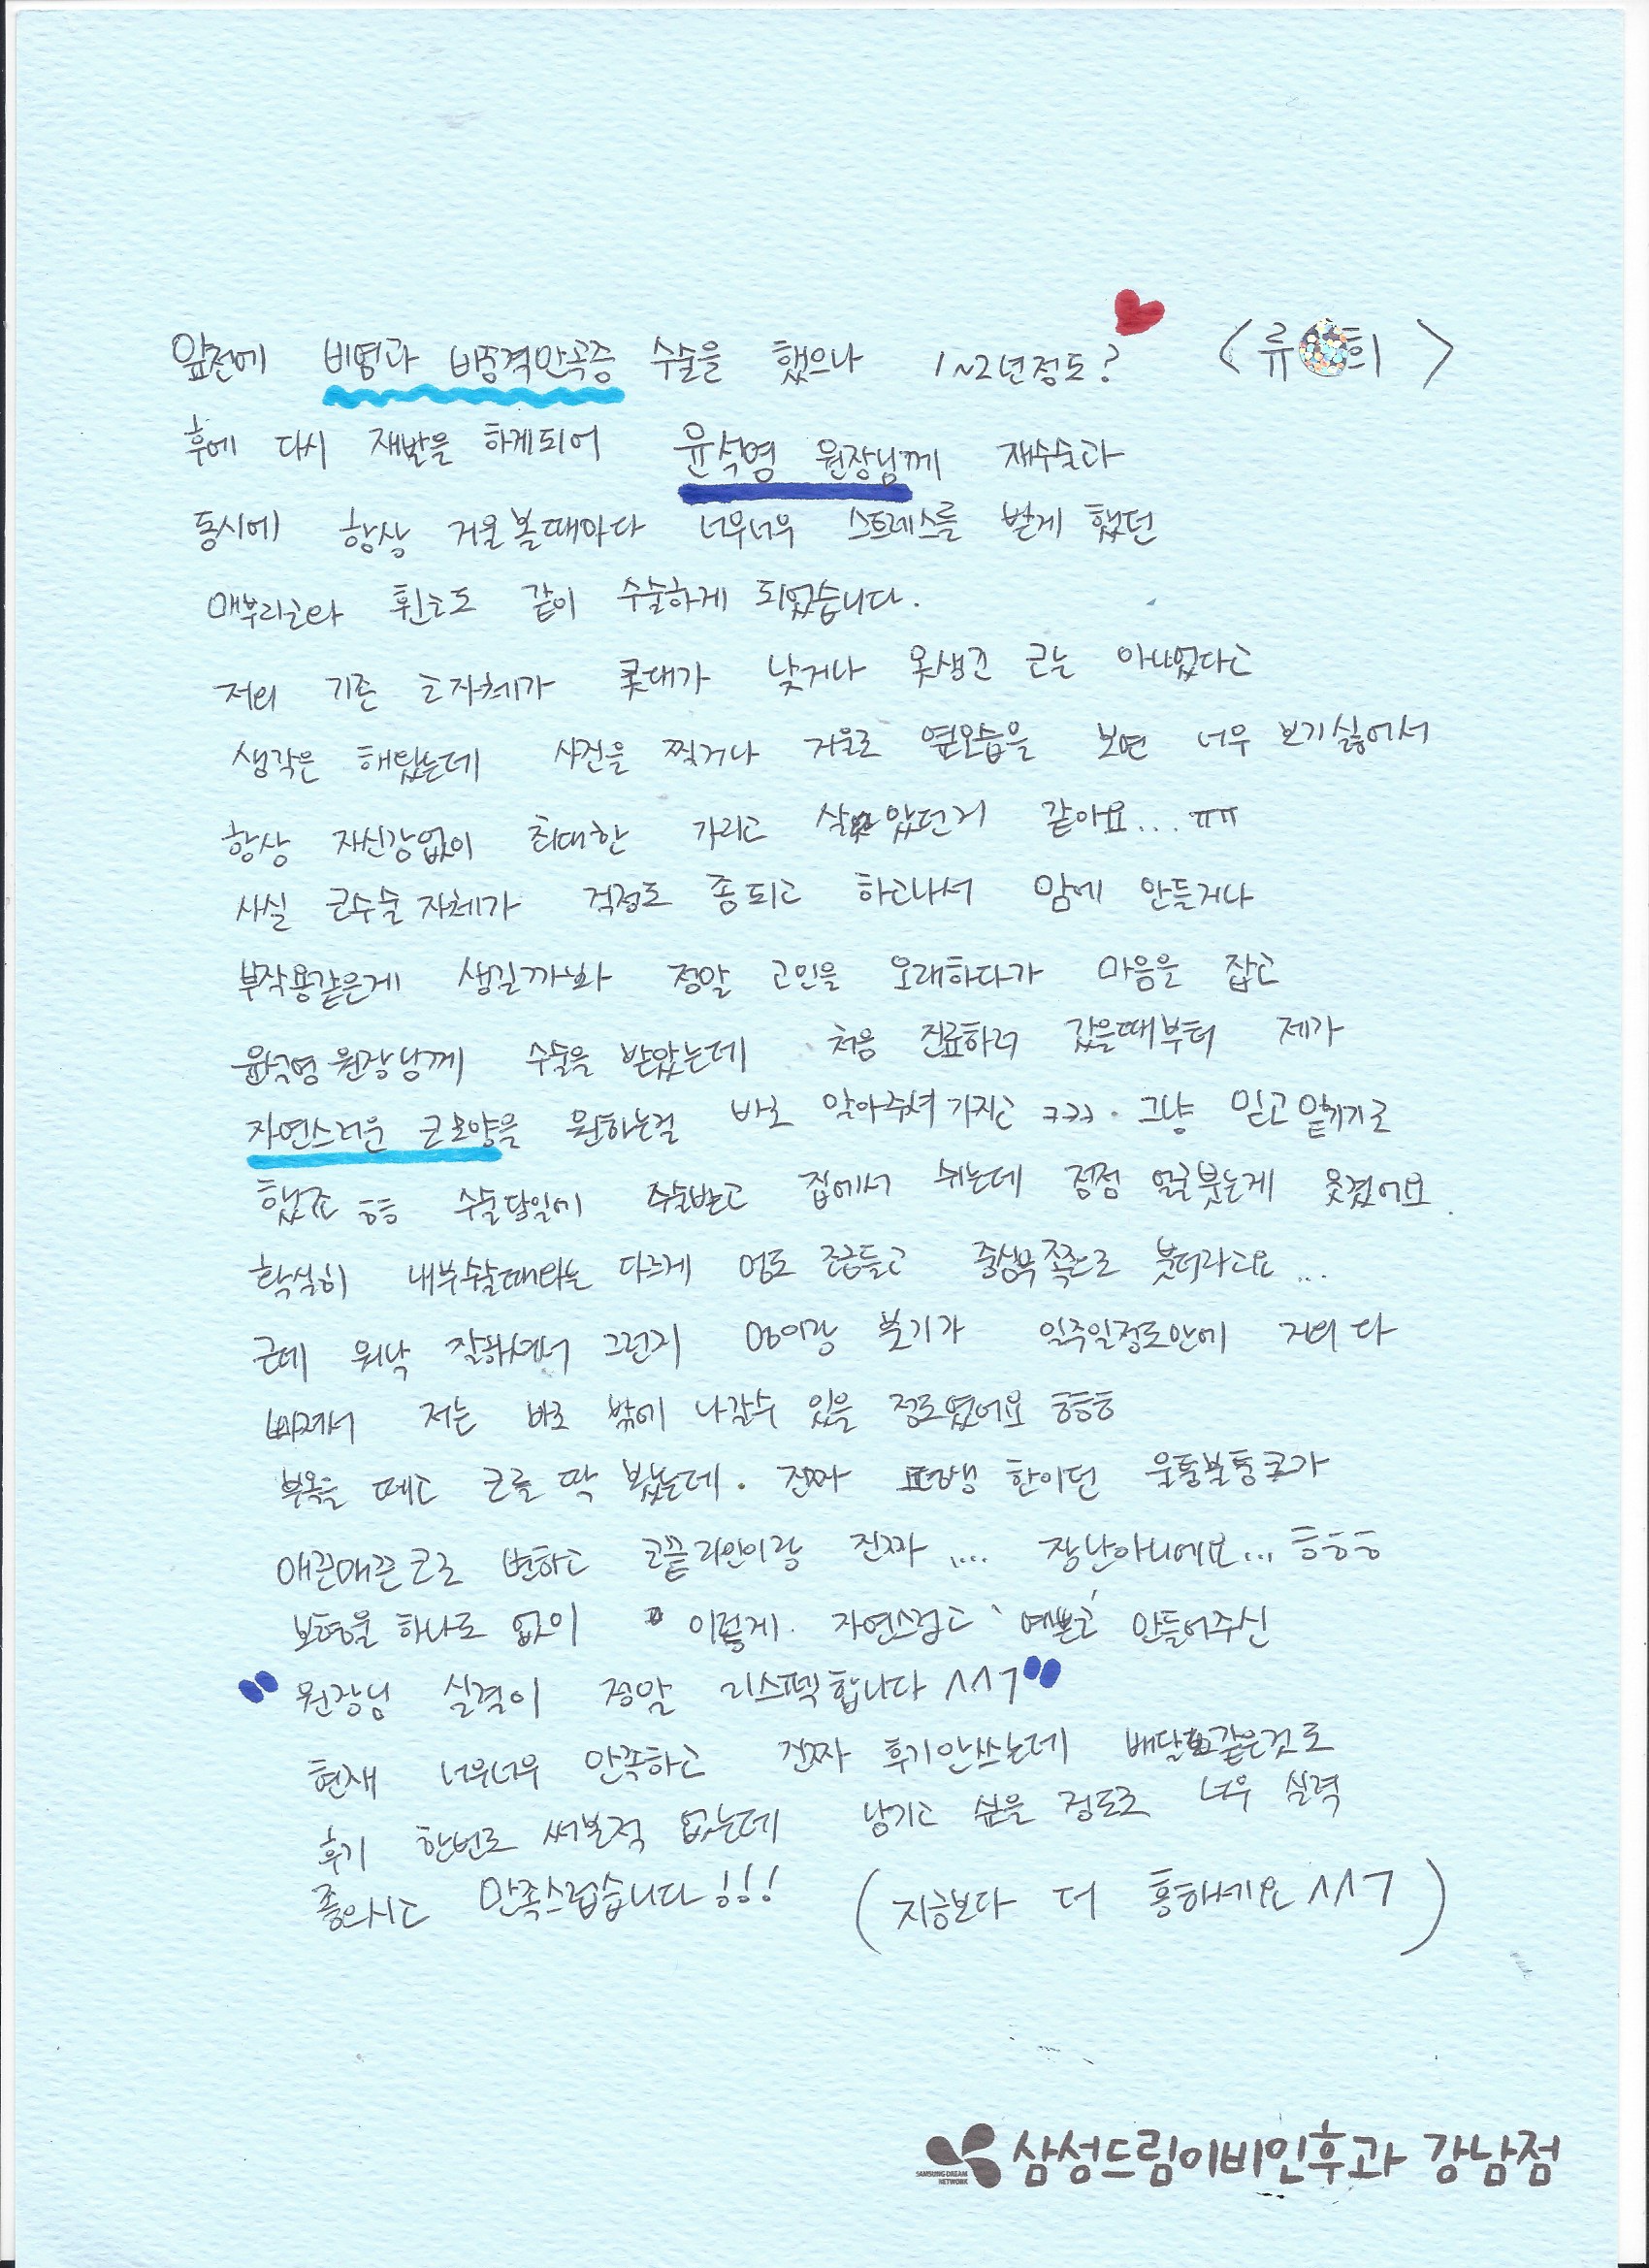 앞전에 비염과 비중격만곡증 수술을 했으나 1~2년정도? <류 희>
후에 다시 재발을 하게되어 윤석영 원장님께 재수술과
동시에 항상 거울볼때마다 너무너무 스트레스를 받게 했던
매부리코와 휜코도 같이 수술하게 되었습니다.
저의 기존 코자체가 콧대가 낮거나 못생긴 코는 아니었다고
생각은 해왔는데 사진을 찍거나 거울로 옆모습을 보면 너무 보기싫어서
항상 자신감없이 최대한 가리고 살았던거 같아요... ㅠㅠ
사실 코수술 자체가 걱정도 좀 되고 하고나서 맘에 안들거나
부작용같은게 생길까봐 정말 고민을 오래하다가 마음을 잡고
윤석영 원장님께 수술을 받았는데 처음 진료하러 갔을때부터 제가
자연스러운 코모양을 원하는걸 바로 알아주셔가지고 ㅋㅋㅋ. 그냥 믿고 맡기기로
했죠 ㅎㅎ 수술당일에 수술받고 집에서 쉬는데 점점 얼굴붓는게 웃겼어요.
확실히 내부수술때와는 다르게 멍도 조금들고 중상부쪽으로 붓더라고요...
근데 워낙 잘하셔서 그런지 멍이랑 붓기가 일주일정도안에 거의 다
빠져서 저는 바로 밖에 나갈수 있을 정도였어요 ㅎㅎㅎ
부목을 떼고 코를 딱 봤는데. 진짜 평생 한이던 울퉁불퉁코가
매끈매끈코로 변하고 코끝라인이랑 진짜 .... 장난아니에요... ㅎㅎㅎ
보형물 하나도 없이 이렇게 자연스럽고 '예쁜코' 만들어주신
"원장님 실력이 정말 리스펙합니다 ^^7"
현재 너무너무 만족하고 진짜 후기안쓰는데 배달 같은것도
후기 한번도 써본적 없는데 남기고 싶을 정도로 너무 실력
좋으시고 만족스럽습니다!!! (지금보다 더 흥하세요 ^^7)
SAMSUNG DREAM NETWORK 삼성드림이비인후과 강남점